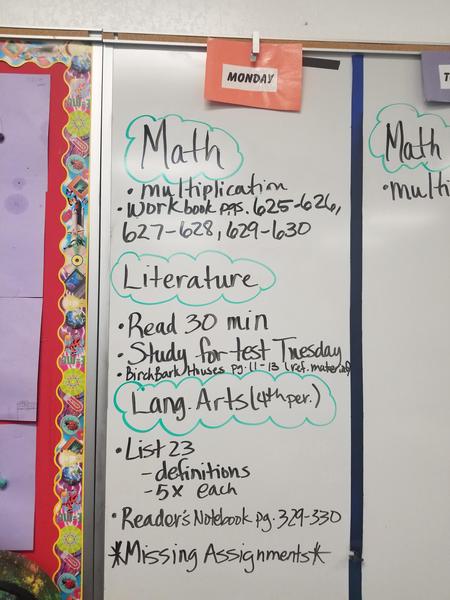 MONDAY
T
Math
• multiplication
• Workbook pgs. 625-626,
627-628, 629-630
Literature
• Read 30 min
• Study for test Tuesday
• BirchBark Houses pg. 11-13 (ref. material)
Lang. Arts (4th per.)
• List 23
- definitions
- 5x each
• Reader's Notebook pg. 329-330
*Missing Assignments*
Math
• multi